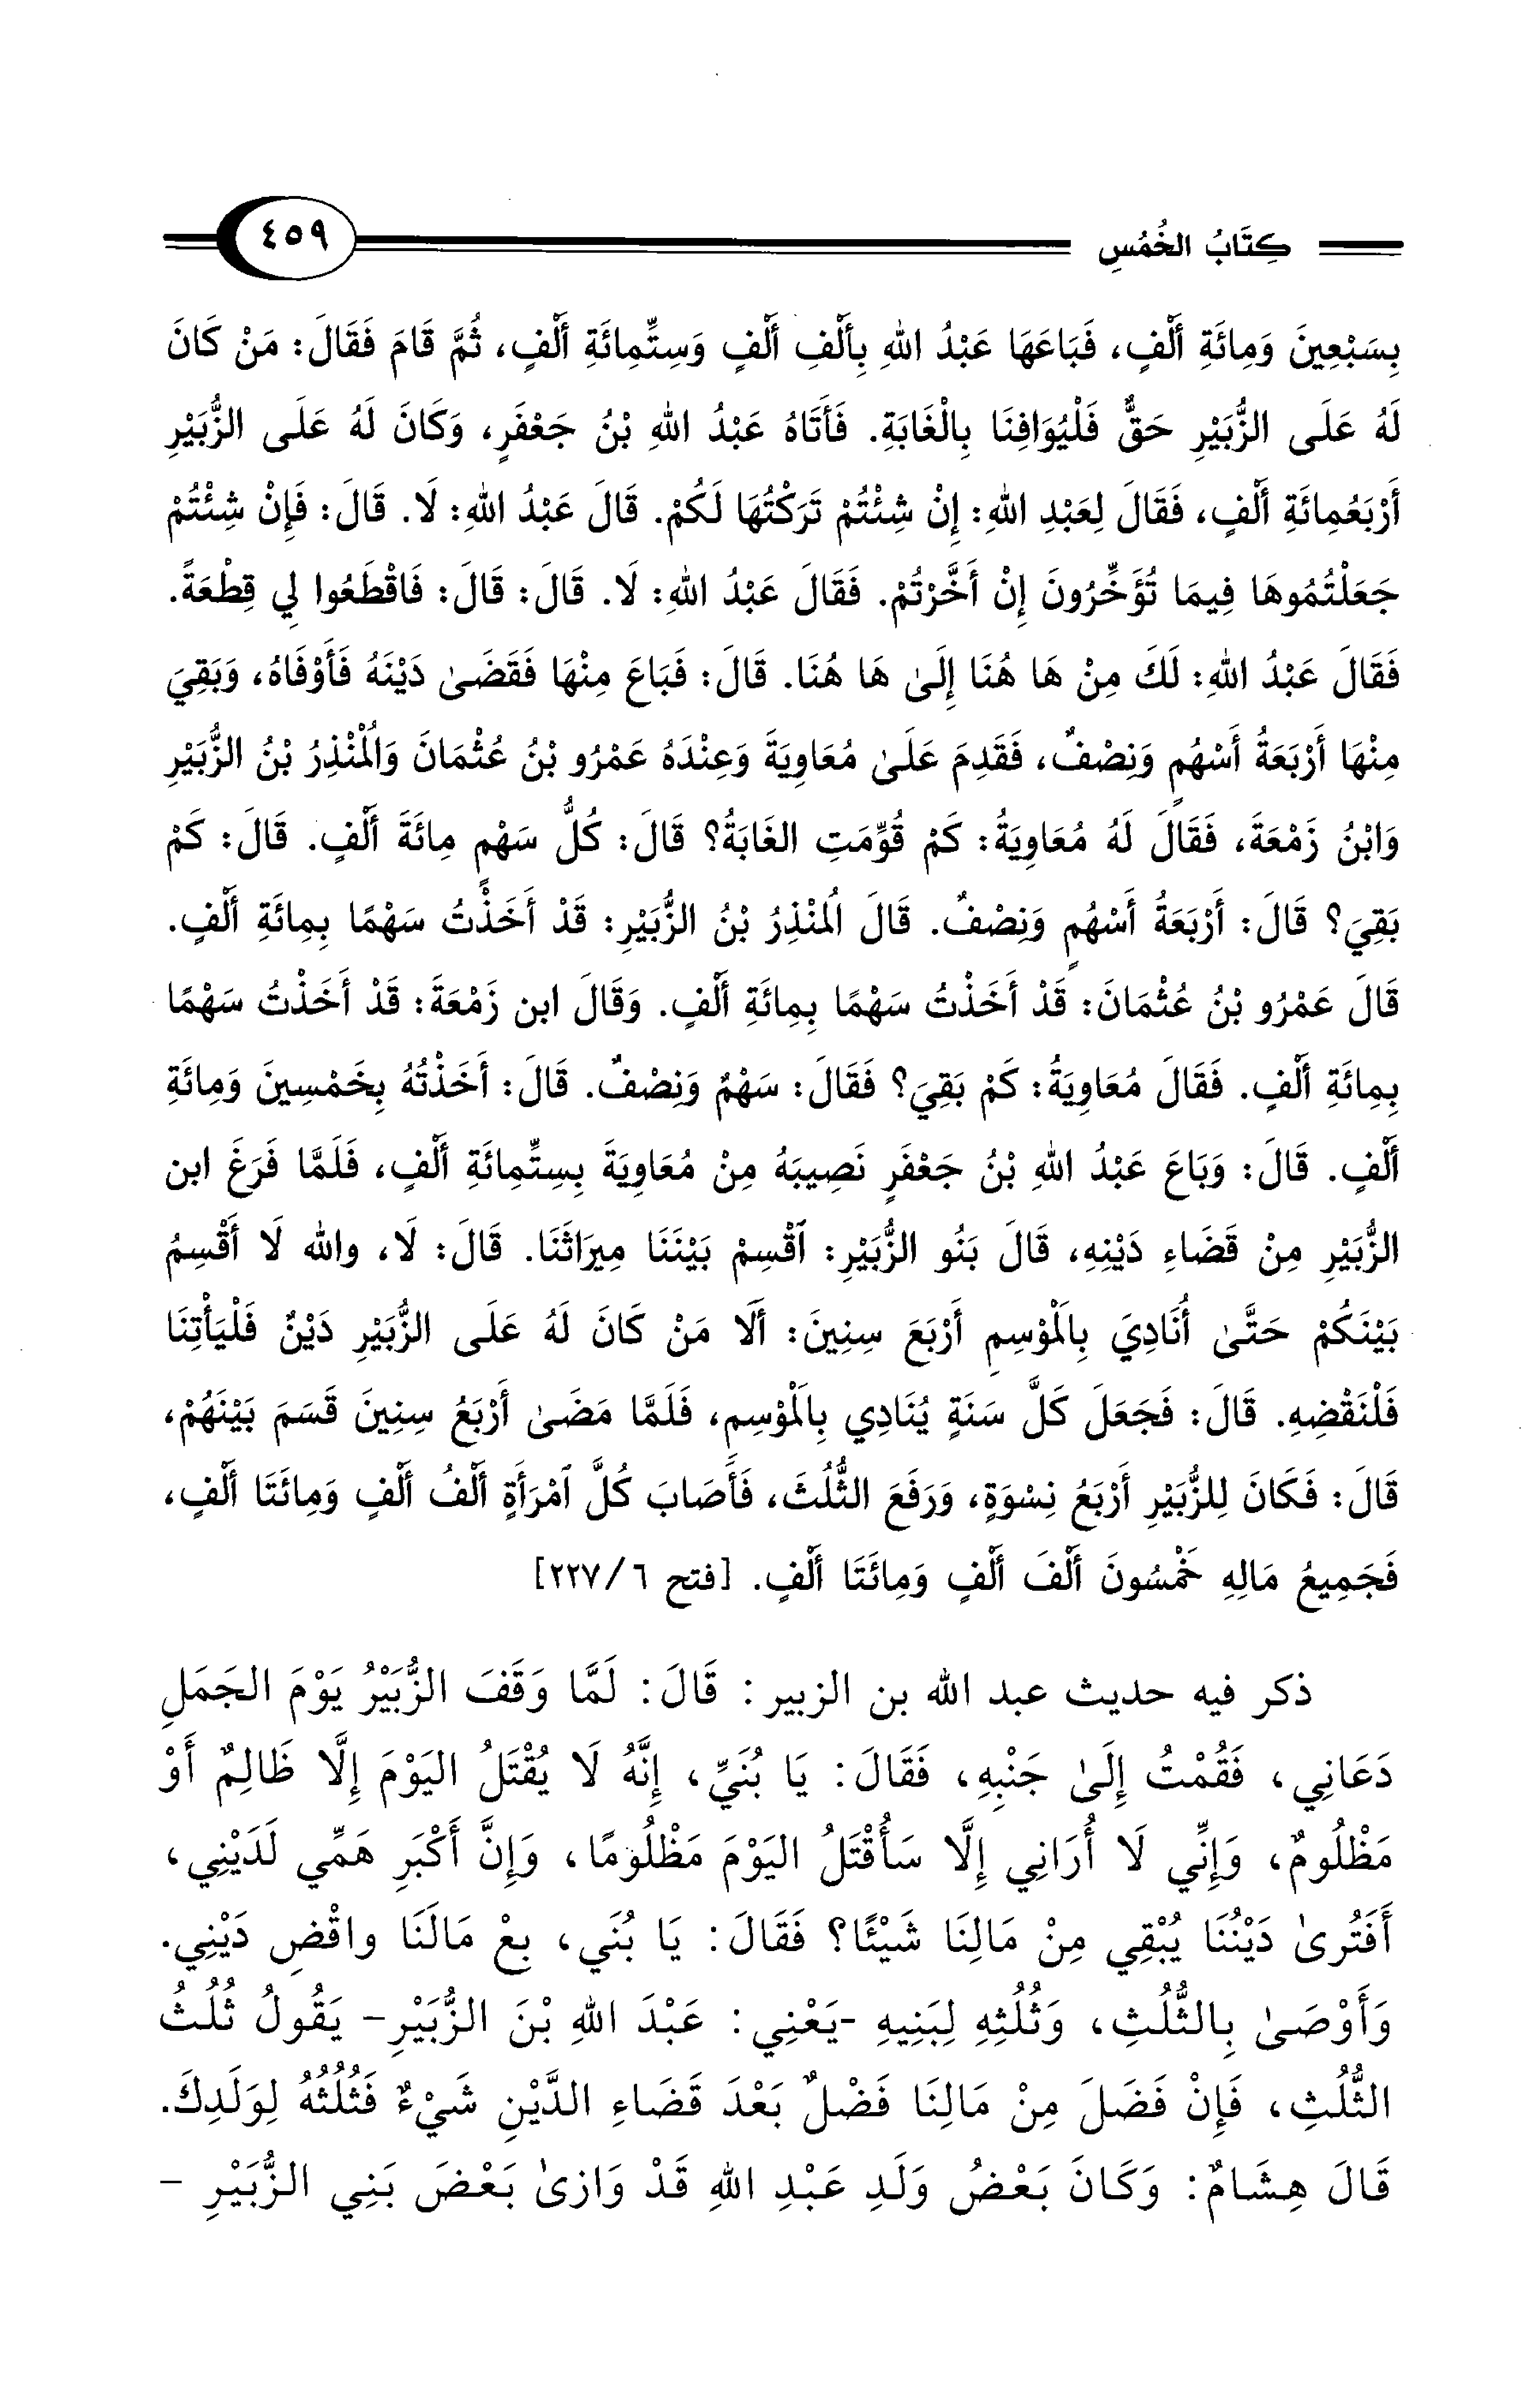 كِتَابُ الخُمُسِ
٤٥٩
بِسَبْعِينَ وَمِائَةِ أَلْفٍ، فَبَاعَهَا عَبْدُ اللهِ بِأَلْفِ أَلْفٍ وَسِتِّمِائَةِ أَلْفٍ، ثُمَّ قَامَ فَقَالَ: مَنْ كَانَ
لَهُ عَلَى الزُّبَيْرِ حَقٌّ فَلْيُوَافِنَا بِالْغَابَةِ. فَأَتَاهُ عَبْدُ اللهِ بْنُ جَعْفَرٍ، وَكَانَ لَهُ عَلَى الزُّبَيْرِ
أَرْبَعُمِائَةِ أَلْفٍ، فَقَالَ لِعَبْدِ اللهِ: إِنْ شِئْتُمْ تَرَكْتُهَا لَكُمْ. قَالَ عَبْدُ اللهِ: لَا. قَالَ: فَإِنْ شِئْتُمْ
جَعَلْتُمُوهَا فِيمَا تُؤَخِّرُونَ إِنْ أَخَّرْتُمْ. فَقَالَ عَبْدُ اللهِ: لَا. قَالَ: قَالَ: فَاقْطَعُوا لِي قِطْعَةً.
فَقَالَ عَبْدُ اللهِ: لَكَ مِنْ هَا هُنَا إِلَىٰ هَا هُنَا. قَالَ: فَبَاعَ مِنْهَا فَقَضَىٰ دَيْنَهُ فَأَوْفَاهُ، وَبَقِيَ
مِنْهَا أَرْبَعَةُ أَسْهُمٍ وَنِصْفٌ، فَقَدِمَ عَلَىٰ مُعَاوِيَةَ وَعِنْدَهُ عَمْرُو بْنُ عُثْمَانَ وَالْمُنْذِرُ بْنُ الزُّبَيْرِ
وَابْنُ زَمْعَةَ، فَقَالَ لَهُ مُعَاوِيَةُ: كَمْ قُوِّمَتِ الغَابَةُ؟ قَالَ: كُلُّ سَهْمٍ مِائَةَ أَلْفٍ. قَالَ: كَمْ
بَقِيَ؟ قَالَ: أَرْبَعَةُ أَسْهُمٍ وَنِصْفٌ. قَالَ المُنْذِرُ بْنُ الزُّبَيْرِ: قَدْ أَخَذْتُ سَهْمًا بِمِائَةِ أَلْفٍ.
قَالَ عَمْرُو بْنُ عُثْمَانَ: قَدْ أَخَذْتُ سَهْمًا بِمِائَةِ أَلْفٍ. وَقَالَ ابن زَمْعَةَ: قَدْ أَخَذْتُ سَهْمًا
بِمِائَةِ أَلْفٍ. فَقَالَ مُعَاوِيَةُ: كَمْ بَقِيَ؟ فَقَالَ: سَهْمٌ وَنِصْفٌ. قَالَ: أَخَذْتُهُ بِخَمْسِينَ وَمِائَةِ
أَلْفٍ. قَالَ: وَبَاعَ عَبْدُ اللهِ بْنُ جَعْفَرٍ نَصِيبَهُ مِنْ مُعَاوِيَةَ بِسِتِّمِائَةِ أَلْفٍ، فَلَمَّا فَرَغَ ابن
الزُّبَيْرِ مِنْ قَضَاءِ دَيْنِهِ، قَالَ بَنُو الزُّبَيْرِ: ٱقْسِمْ بَيْنَنَا مِيرَاثَنَا. قَالَ: لَا، والله لَا أَقْسِمُ
بَيْنَكُمْ حَتَّىٰ أُنَادِيَ بِالْمَوْسِمِ أَرْبَعَ سِنِينَ: أَلَا مَنْ كَانَ لَهُ عَلَى الزُّبَيْرِ دَيْنٌ فَلْيَأْتِنَا
فَلْنَقْضِهِ. قَالَ: فَجَعَلَ كَلَّ سَنَةٍ يُنَادِي بِالْمَوْسِمِ، فَلَمَّا مَضَىٰ أَرْبَعُ سِنِينَ قَسَمَ بَيْنَهُمْ،
قَالَ: فَكَانَ لِلزُّبَيْرِ أَرْبَعُ نِسْوَةٍ، وَرَفَعَ الثُّلُثَ، فَأَصَابَ كُلَّ ٱمْرَأَةٍ أَلْفُ أَلْفٍ وَمِائَتَا أَلْفٍ،
فَجَمِيعُ مَالِهِ خَمْسُونَ أَلْفَ أَلْفٍ وَمِائَتَا أَلْفٍ. [فتح ٦/٢٢٧]
ذكر فيه حديث عبد الله بن الزبير: قَالَ: لَمَّا وَقَفَ الزُّبَيْرُ يَوْمَ الجَمَلِ
دَعَانِي، فَقُمْتُ إِلَىٰ جَنْبِهِ، فَقَالَ: يَا بُنَيِّ، إِنَّهُ لَا يُقْتَلُ اليَوْمَ إِلَّا ظَالِمٌ أَوْ
مَظْلُومٌ، وَإِنِّي لَا أُرَانِي إِلَّا سَأُقْتَلُ اليَوْمَ مَظْلُومًا، وَإِنَّ أَكْبَرِ هَمِّي لَدَيْنِي،
أَفَتُرىٰ دَيْنُنَا يُبْقِي مِنْ مَالِنَا شَيْئًا؟ فَقَالَ: يَا بُنَي، بِعْ مَالَنَا واقْضِ دَيْنِي.
وَأَوْصَىٰ بِالثُّلُثِ، وَثُلُثِهِ لِبَنِيهِ -يَعْنِي: عَبْدَ اللهِ بْنَ الزُّبَيْرِ- يَقُولُ ثُلُثُ
الثُّلُثِ، فَإِنْ فَضَلَ مِنْ مَالِنَا فَضْلٌ بَعْدَ قَضَاءِ الدَّيْنِ شَيْءٌ فَثُلُثُهُ لِوَلَدِكَ.
قَالَ هِشَامٌ: وَكَانَ بَعْضُ وَلَدِ عَبْدِ اللهِ قَدْ وَازىٰ بَعْضَ بَنِي الزُّبَيْرِ -